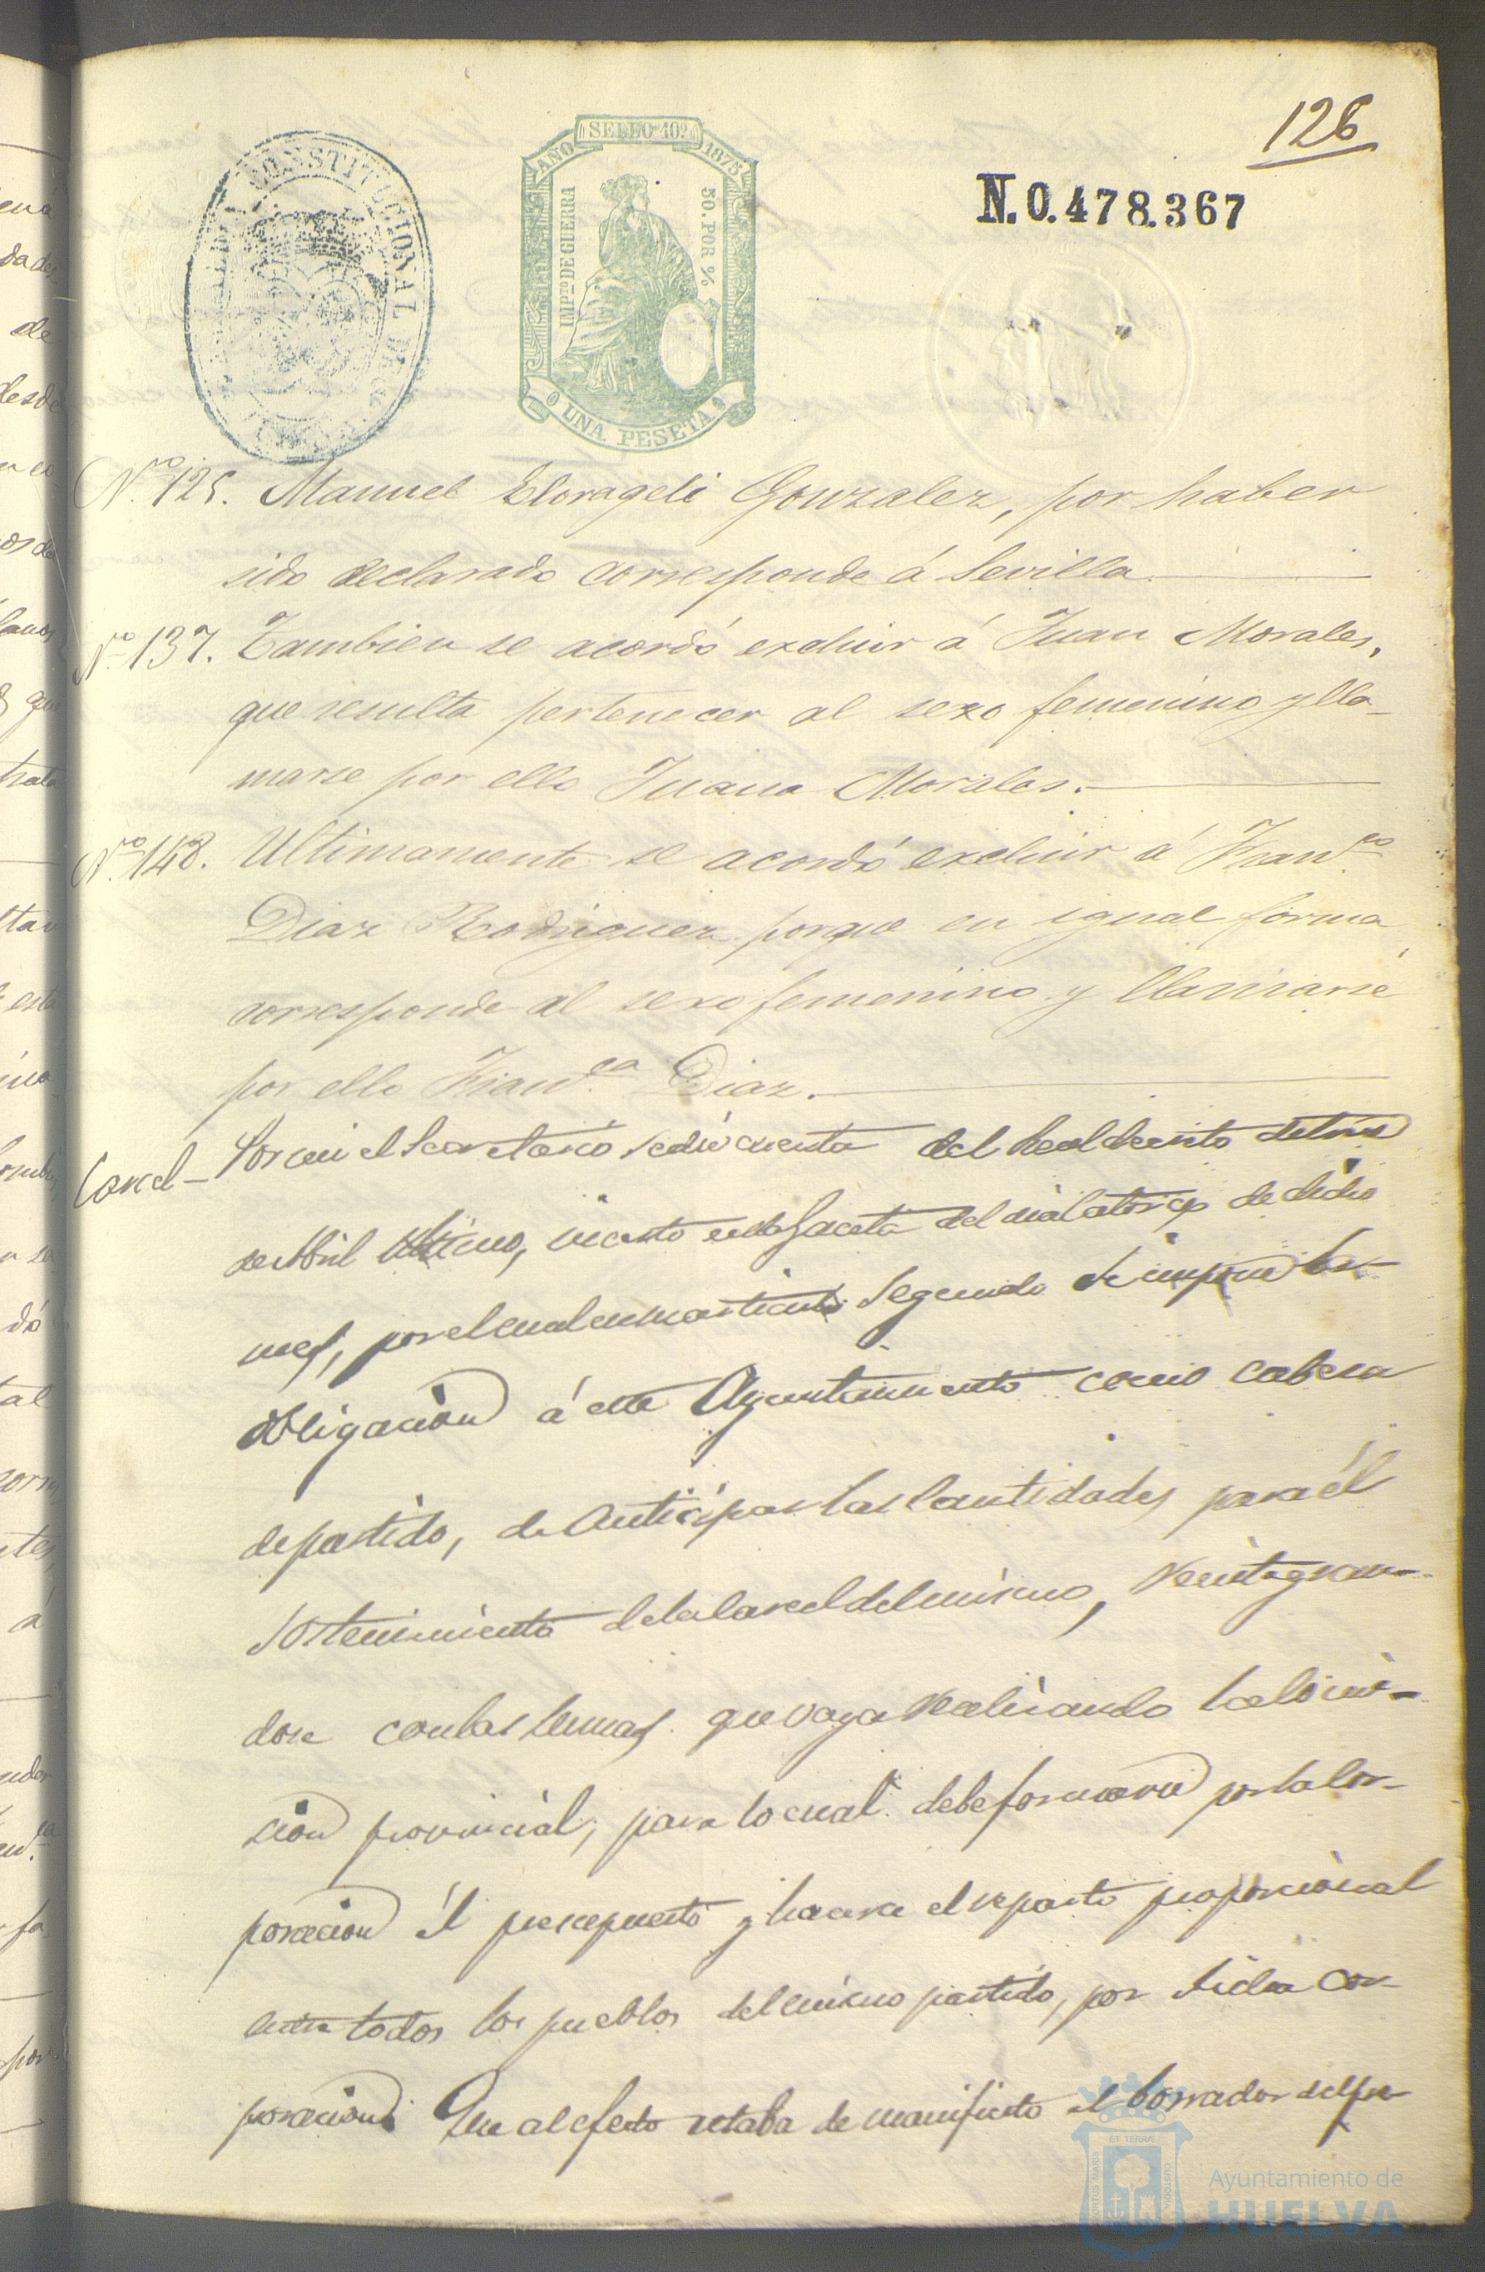 126
N. 0.478.367
CONSTITUCIONAL DE
SELLO 10º
AÑO 1875
IMPTO DE GUERRA
50. POR %
UNA PESETA
Nro 125. Manuel Gonzalez, por haber
sido declarado corresponde á Sevilla.
Nro 137. Tambien se acordó excluir á Juan Morales,
que resulta pertenecer al sexo femenino y lla-
marse por ello Juana Morales.
Nro 148. Ultimamente se acordó excluir á Franco
Diaz Rodriguez porque en igual forma
corresponde al sexo femenino y llamarse
por ello Franca Diaz.
Carcel - Por mi el Secretario se dió cuenta del Real decreto de trece
de Abril último, inserto en la Gaceta del dia catorce de dicho
mes, por el cual en su articulo segundo se impone la
obligacion á este Ayuntamiento como cabeza
de partido, de anticipar las cantidades para el
sostenimiento de la Carcel del mismo, reintegran-
dose con las sumas que vaya realizando la Comi-
sion provincial, para lo cual debe formarse por la Cor-
poracion el presupuesto y hacerse el reparto proporcional
entre todos los pueblos del mismo partido, por dicha Cor-
poracion. Que al efecto estaba de manifiesto el borrador del pre-
Ayuntamiento de
HUELVA